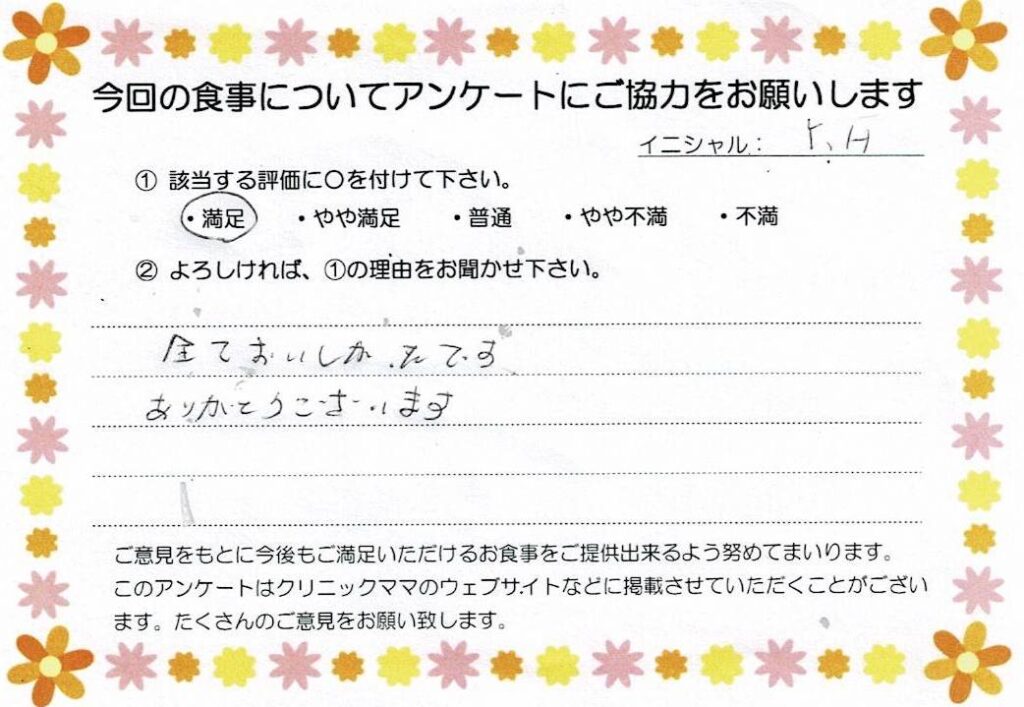 今回の食事についてアンケートにご協力をお願いします
イニシャル： Y、H
① 該当する評価に〇を付けて下さい。
・満足 ・やや満足 ・普通 ・やや不満 ・不満
② よろしければ、①の理由をお聞かせ下さい。
全ておいしかったです
ありがとうございます
ご意見をもとに今後もご満足いただけるお食事をご提供出来るよう努めてまいります。
このアンケートはクリニックママのウェブサイトなどに掲載させていただくことがござい
ます。たくさんのご意見をお願い致します。